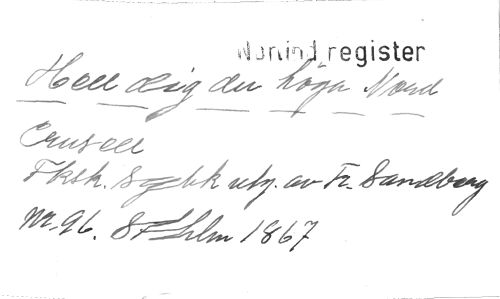 Nominal register
Hell dig du höga Nord
Crusell
Fksk. Sgbk utg. av Fr. Sandberg
nr. 96. Sthlm 1867